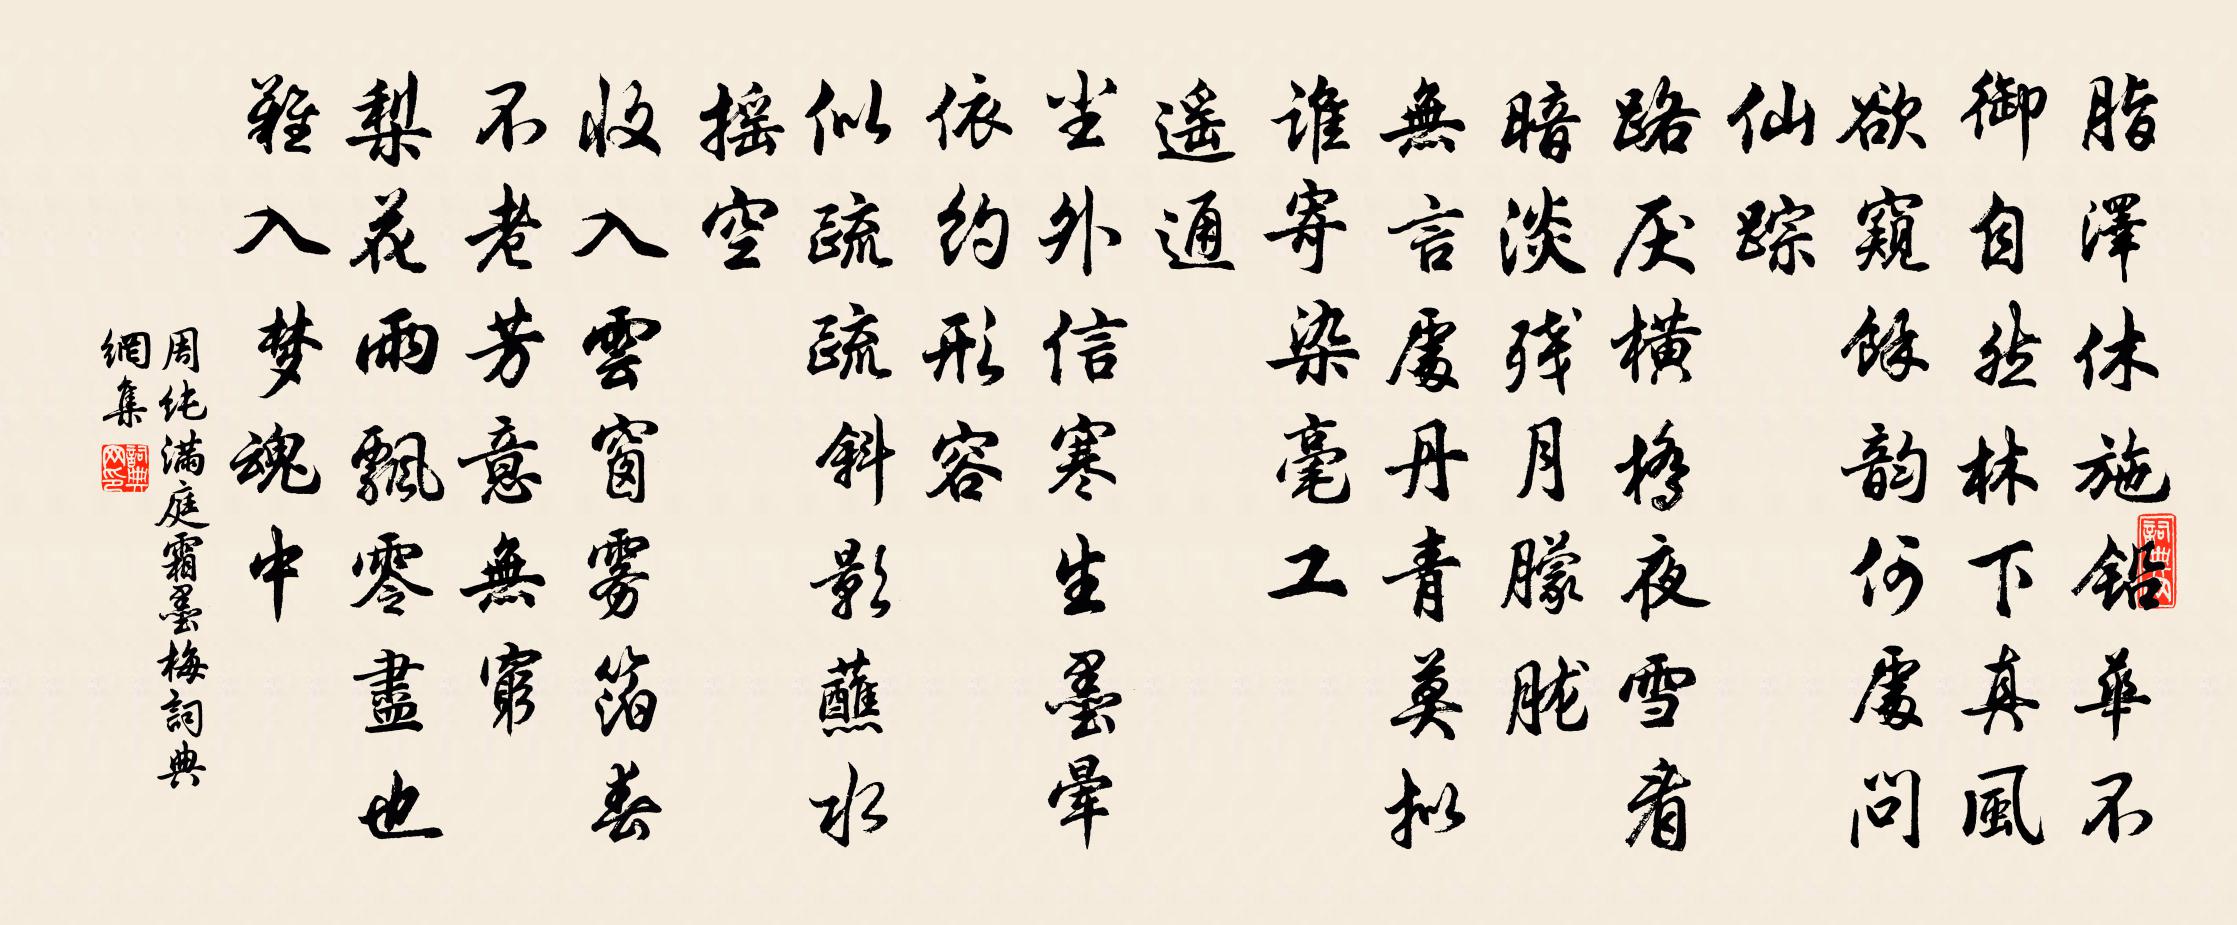 脂澤休施鉛華不
御自然林下真風
欲窺餘韵何處問
仙踪
路厌横橋夜雪看
暗淡残月朦胧
無言處丹青莫拟
谁寄染毫工
遥通
尘外信寒生墨暈
依约形容
似疏疏斜影蘸水
摇空
收入雲窗雾箔春
不老芳意無窮
梨花雨飄零盡也
難入梦魂中
周纯满庭霜墨梅詞典
網集